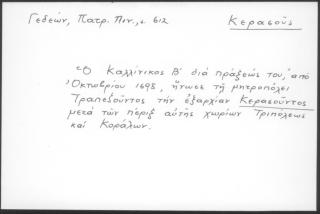 Γεδεών, Πατρ. Πιν., σ. 612
Κερασοῦς
Ὁ Καλλίνικος Β' διά πράξεώς του, ἀπό
Ὀκτωβρίου 1698, ἥνωσε τῇ μητροπόλει
Τραπεζοῦντος τήν ἐξαρχίαν Κερασοῦντος
μετά τῶν πέριξ αὐτῆς χωρίων Τριπόλεως
καί Κοράλων.